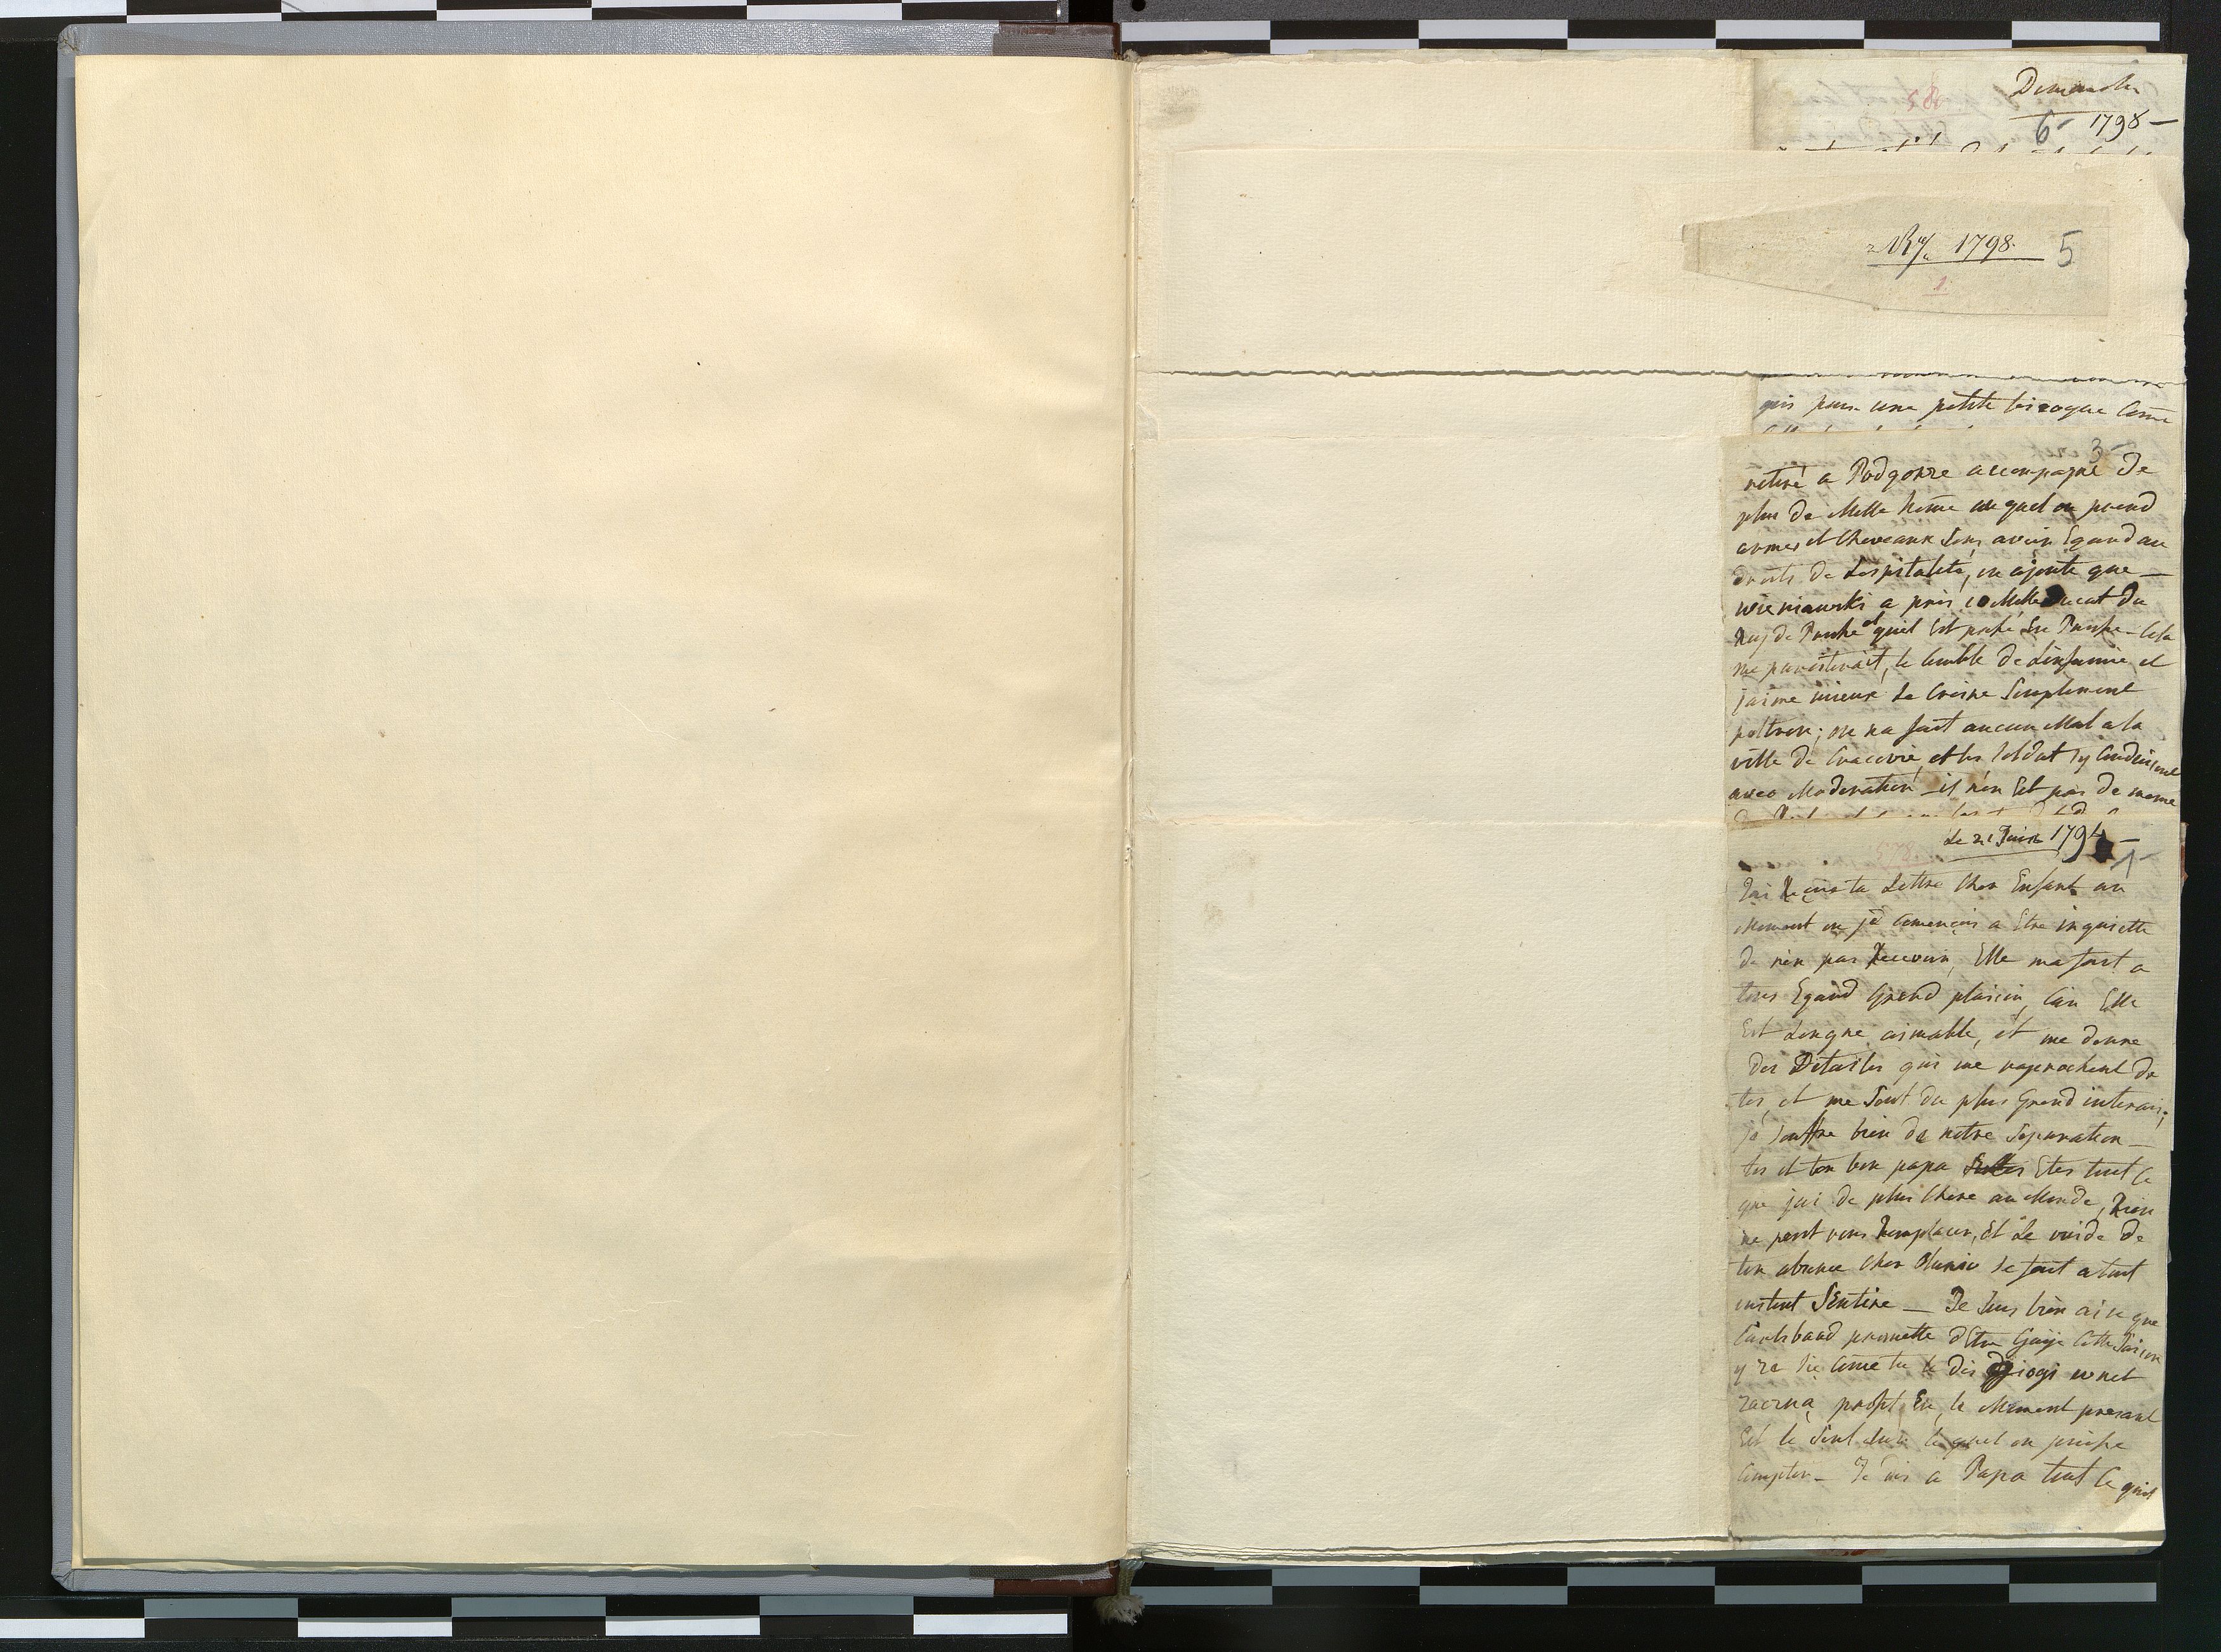 Dimanche
6 1798 —
z Ry 1798. 5
1.
qui pour une petite bicoque Come
3
retiré a Podgorze accompagné de
plus de Mille home auquel on prend
armes et Cheveaux sans avoir Egard au
droits de Lospitalité, on ajoute que —
wieniawski a pris 10 Mille Ducat du
Roy de Prusse et quil Est passé En Prusse - Cela
me paroitrait, le Comble de Linfamie et
jaime mieux Le Croire Simplement
poltron; on na fait aucun Mal a la
ville de Cracovie, et les Soldat sy Conduisent
avec Moderation - il nen Est pas de meme
Le 21 Juin 1794 —
1
578
Jai Reçus ta Lettre Cher Enfant au
Moment ou jé Començois a Etre inquiette
de nén pas Recevoir, Elle ma fait a
tous Egard Grand plaisir, Car Elle
Est Longue aimable, et me donne
des Détailes qui me raprochent de
toi, et me Sont du plus Grand interais;
jé Souffre bien de notre Separation —
toi et ton bon papa Etes tout Ce
que jai de plus Chere au Monde, Rien
ne peut vous Remplacer, Et Le vuide de
ton absence Cher Olunio se fait a tout
instant Sentire — Je Suis bien aise que
Carlsbaad promette dEtre Gaije Cette Saison
y ze sie Come tu le dis drogi wnet
zaczną, profit En, le Moment presant
Est le Seul Sur lequel on puisse
Compter — Je dis a Papa tout Ce quil